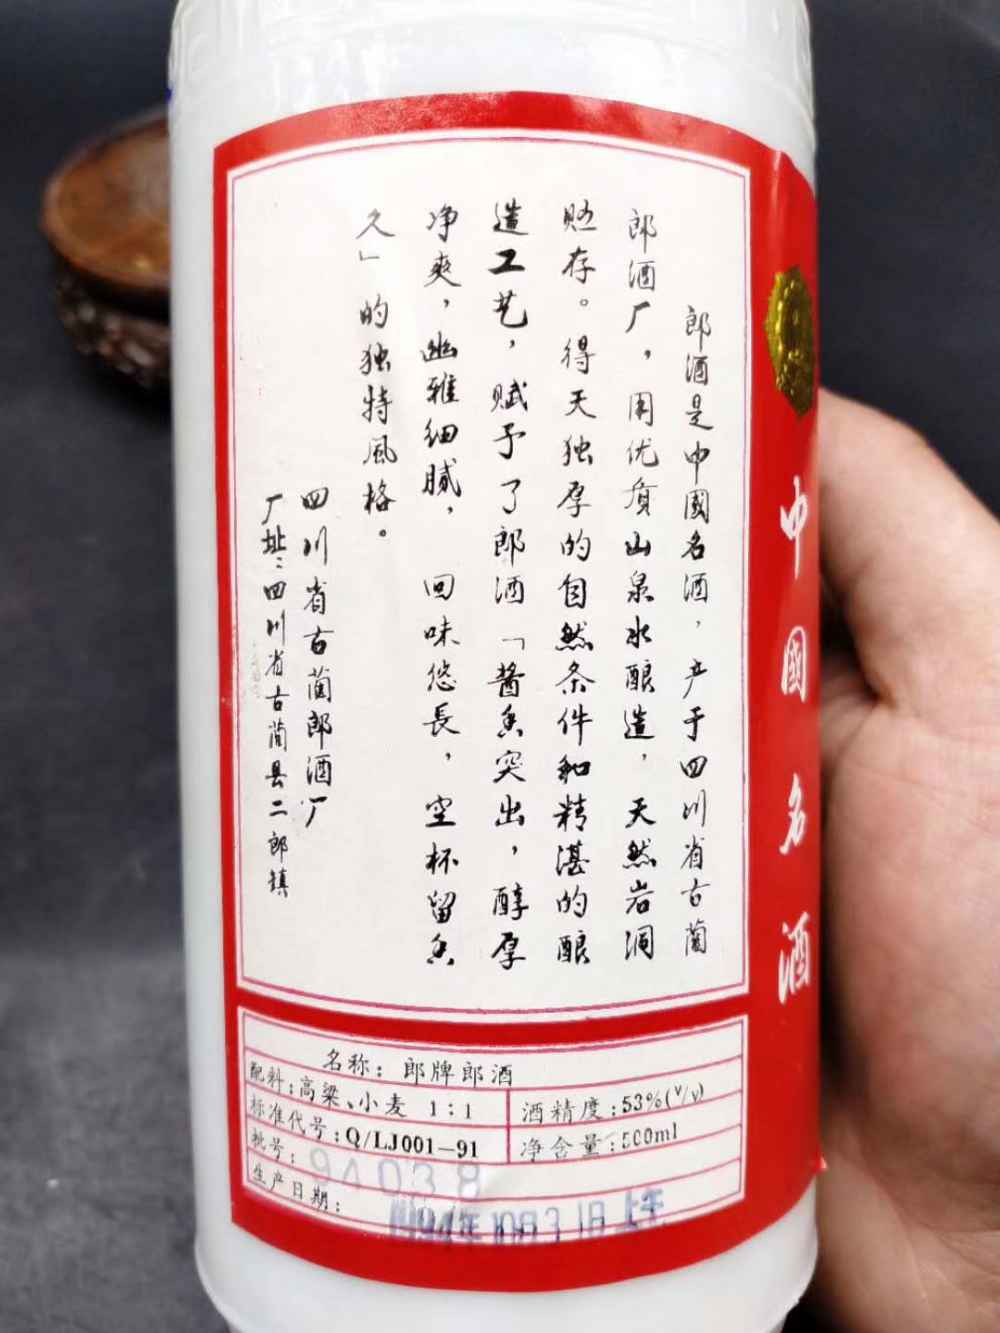 郎酒是中國名酒，产于四川省古蔺
郎酒厂，用优质山泉水酿造，天然岩洞
贮存。得天独厚的自然条件和精湛的酿
造工艺，赋予了郎酒「酱香突出，醇厚
净爽，幽雅细腻，回味悠長，空杯留香
久」的独特風格。
四川省古蔺郎酒厂
厂址：四川省古蔺县二郎镇
中國名酒
名称：郎牌郎酒
配料：高粱、小麦 1：1
酒精度：53%(v/v)
标准代号：Q/LJ001-91
净含量：500ml
批号：94 03 8
生产日期：1994年10月31日上午